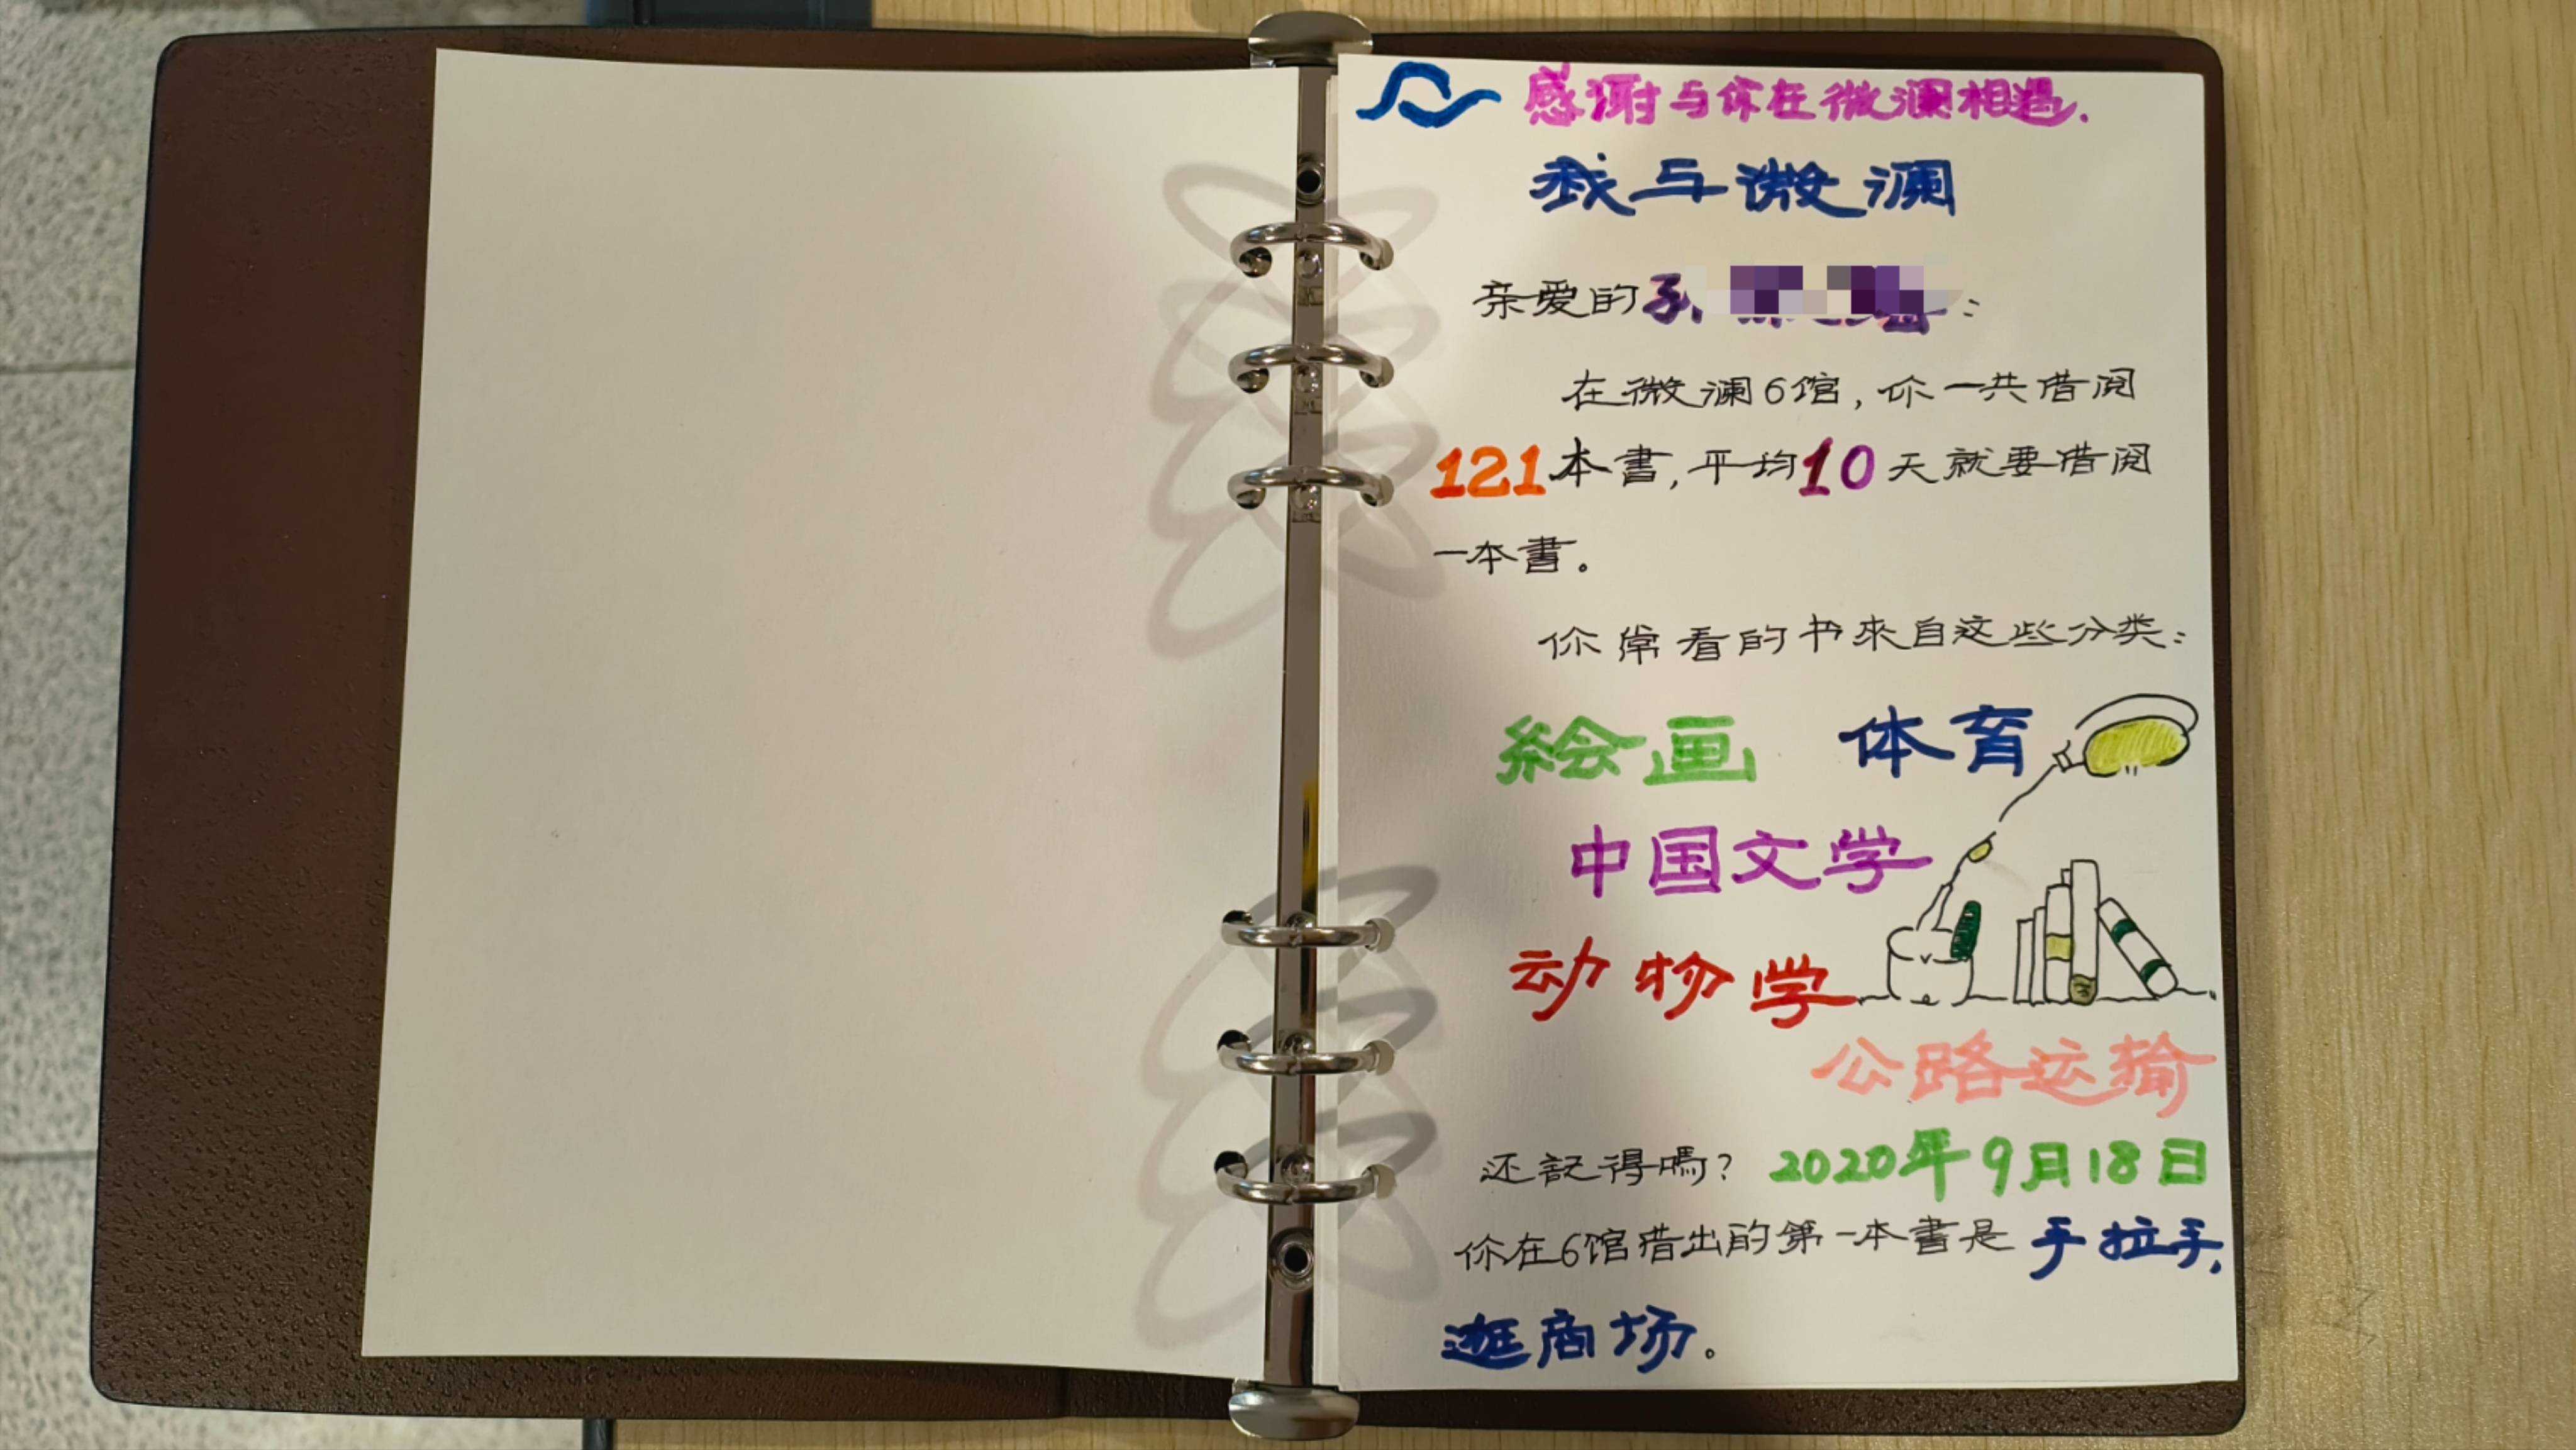 感谢与你在微澜相遇.
我与微澜
亲爱的孙:
在微澜6馆,你一共借阅
121本書,平均10天就要借阅
一本書。
你常看的书來自这些分类:
絵画 体育
中国文学
动物学
公路运输
还記得嗎? 2020年9月18日
你在6馆借出的第一本書是 手拉手,
逛商场。